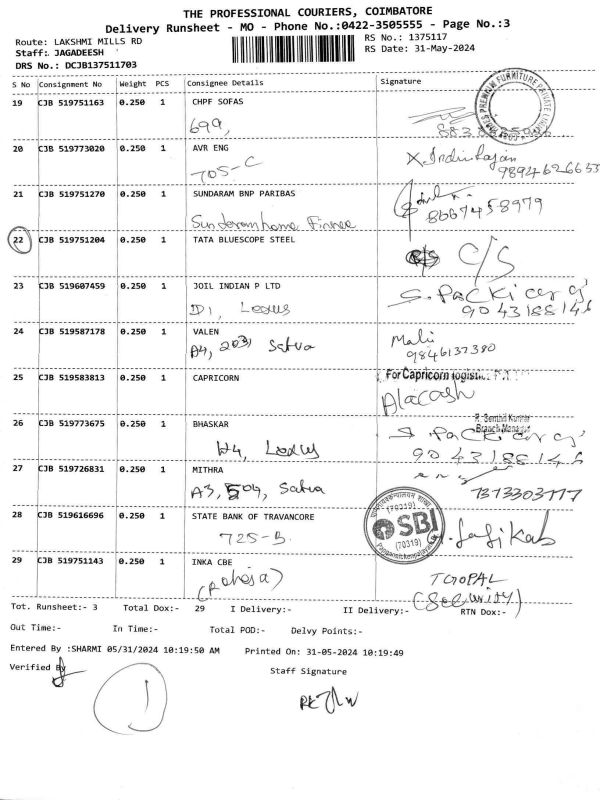 THE PROFESSIONAL COURIERS, COIMBATORE
Delivery Runsheet - MO - Phone No.:0422-3505555 - Page No.:3
Route: LAKSHMI MILLS RD
RS No.: 1375117
Staff: JAGADEESH
RS Date: 31-May-2024
DRS No.: DCJB137511703
S No Consignment No Weight PCS Consignee Details Signature
19 CJB 519751163 0.250 1 CHPF SOFAS
699,
20 CJB 519773020 0.250 1 AVR ENG
705-C
9894626653
21 CJB 519751270 0.250 1 SUNDARAM BNP PARIBAS
8667458979
22 CJB 519751204 0.250 1 TATA BLUESCOPE STEEL
C/S
23 CJB 519607459 0.250 1 JOIL INDIAN P LTD
D1, Lexus
S. Packi
9043188146
24 CJB 519587178 0.250 1 VALEN
A4, 203, Satva
9846137380
25 CJB 519583813 0.250 1 CAPRICORN
For Capricorn
26 CJB 519773675 0.250 1 BHASKAR
Branch Manager
H4, Lexus
S. Packi
9043188146
27 CJB 519726831 0.250 1 MITHRA
A3, 504, Satva
28 CJB 519616696 0.250 1 STATE BANK OF TRAVANCORE
(70319)
SBI
(70319)
725-B
29 CJB 519751143 0.250 1 INKA CBE
(Raheja)
TGOPAL
(Security)
Tot. Runsheet:- 3 Total Dox:- 29 I Delivery:- II Delivery:- RTN Dox:-
Out Time:- In Time:- Total POD:- Delvy Points:-
Entered By :SHARMI 05/31/2024 10:19:50 AM Printed On: 31-05-2024 10:19:49
Verified By
Staff Signature